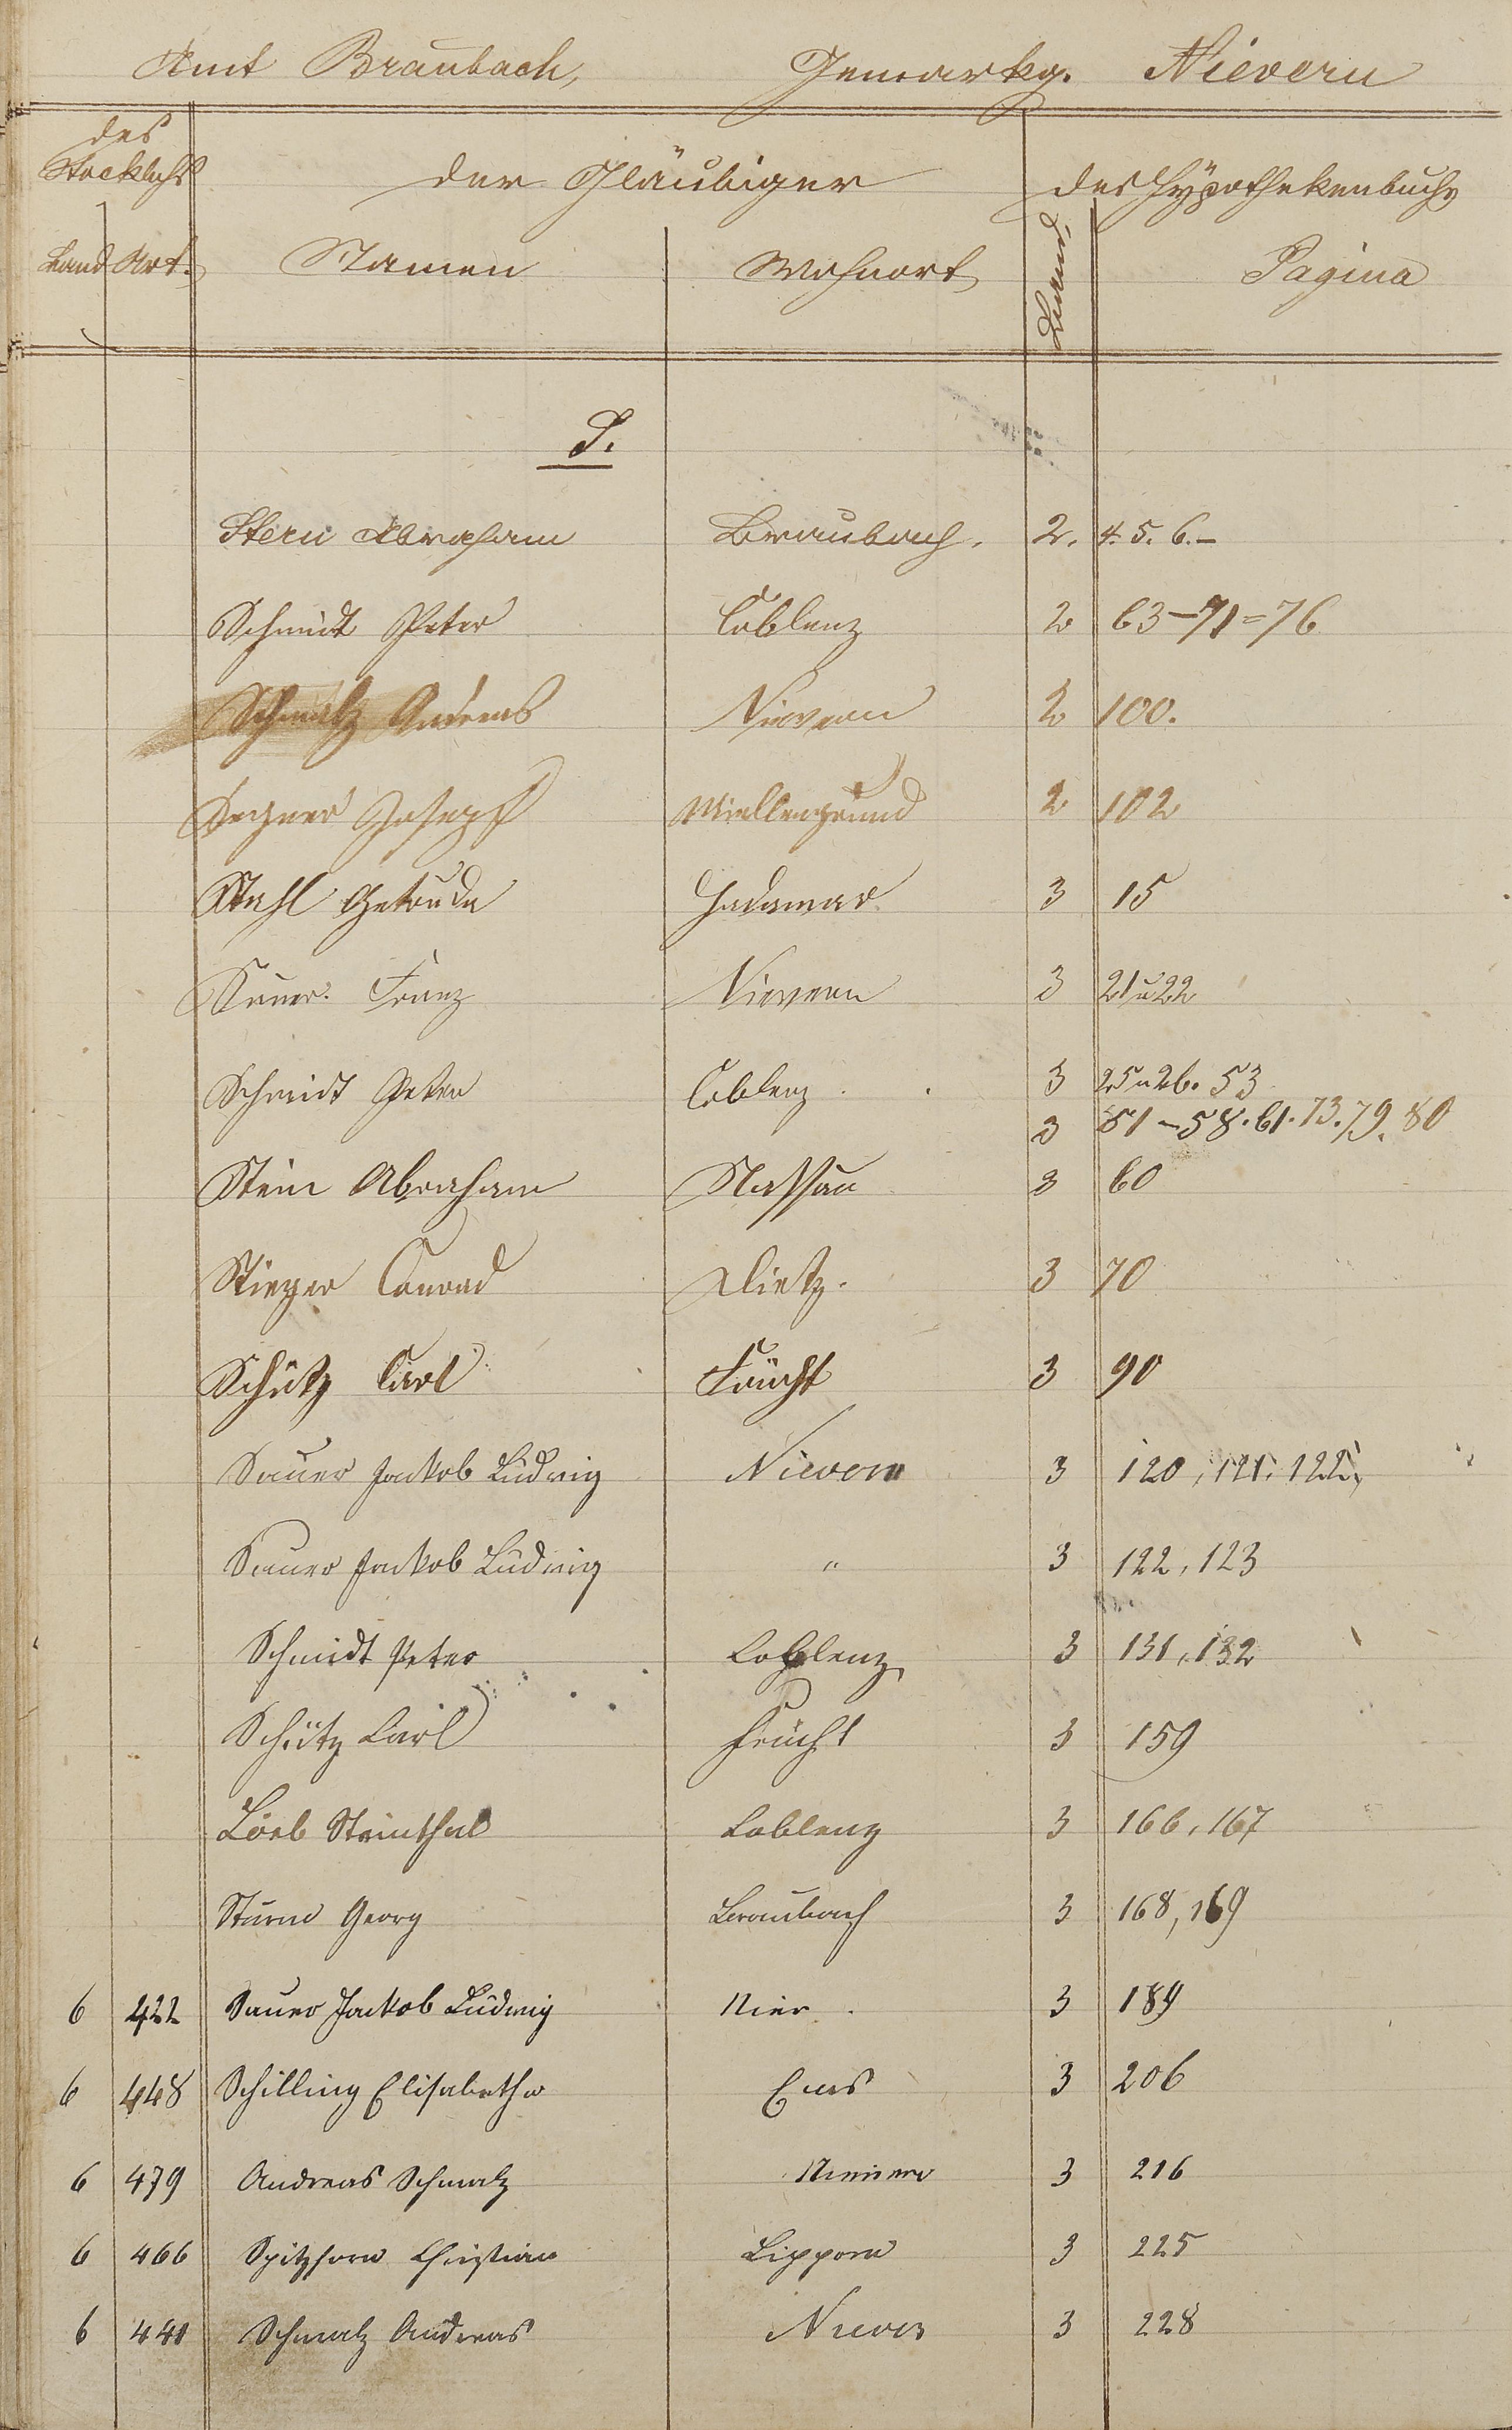 Amt Braubach, Gemarkg. Nievern
des
Stockbuchs der Gläubiger des Hypothekenbuchs
Band Art. Namen Wohnort Band Pagina
S.
Stern Abraham Braubach. 2. 4. 5. 6.–
Schmidt Peter Coblenz 2 63–71=76
Schmalz Andreas Nievern 2 100.
Joseph Miellengrund 2 102
Stahl Getrude Hadamar 3 15
Sauer Franz Nievern 3 21 u 22
Schmidt Peter Coblenz 3 25 u 26. 53
3 51–58. 61. 73. 79. 80
Stein Abraham Nassau 3 60
Stieger Conrad Dietz. 3 70
Schütz Carl Frücht 3 90
Sauer Jackob Ludwig Nievern 3 120, 121, 122,
Sauer Jackob Ludwig " 3 122, 123
Schmidt Peter Coblenz 3 131, 132
Schütz Carl Frücht 3 159
Löeb Steinthal Coblenz 3 166, 167
Sturm Georg Braubach 3 168, 169
6 422 Sauer Jackob Ludwig Niev. 3 189
6 448 Schilling Elisabetha Ems 3 206
6 479 Andreas Schmalz Nievern 3 216
6 466 Spitzhorn Christian Lipporn 3 225
6 441 Schmalz Andreas Niever 3 228